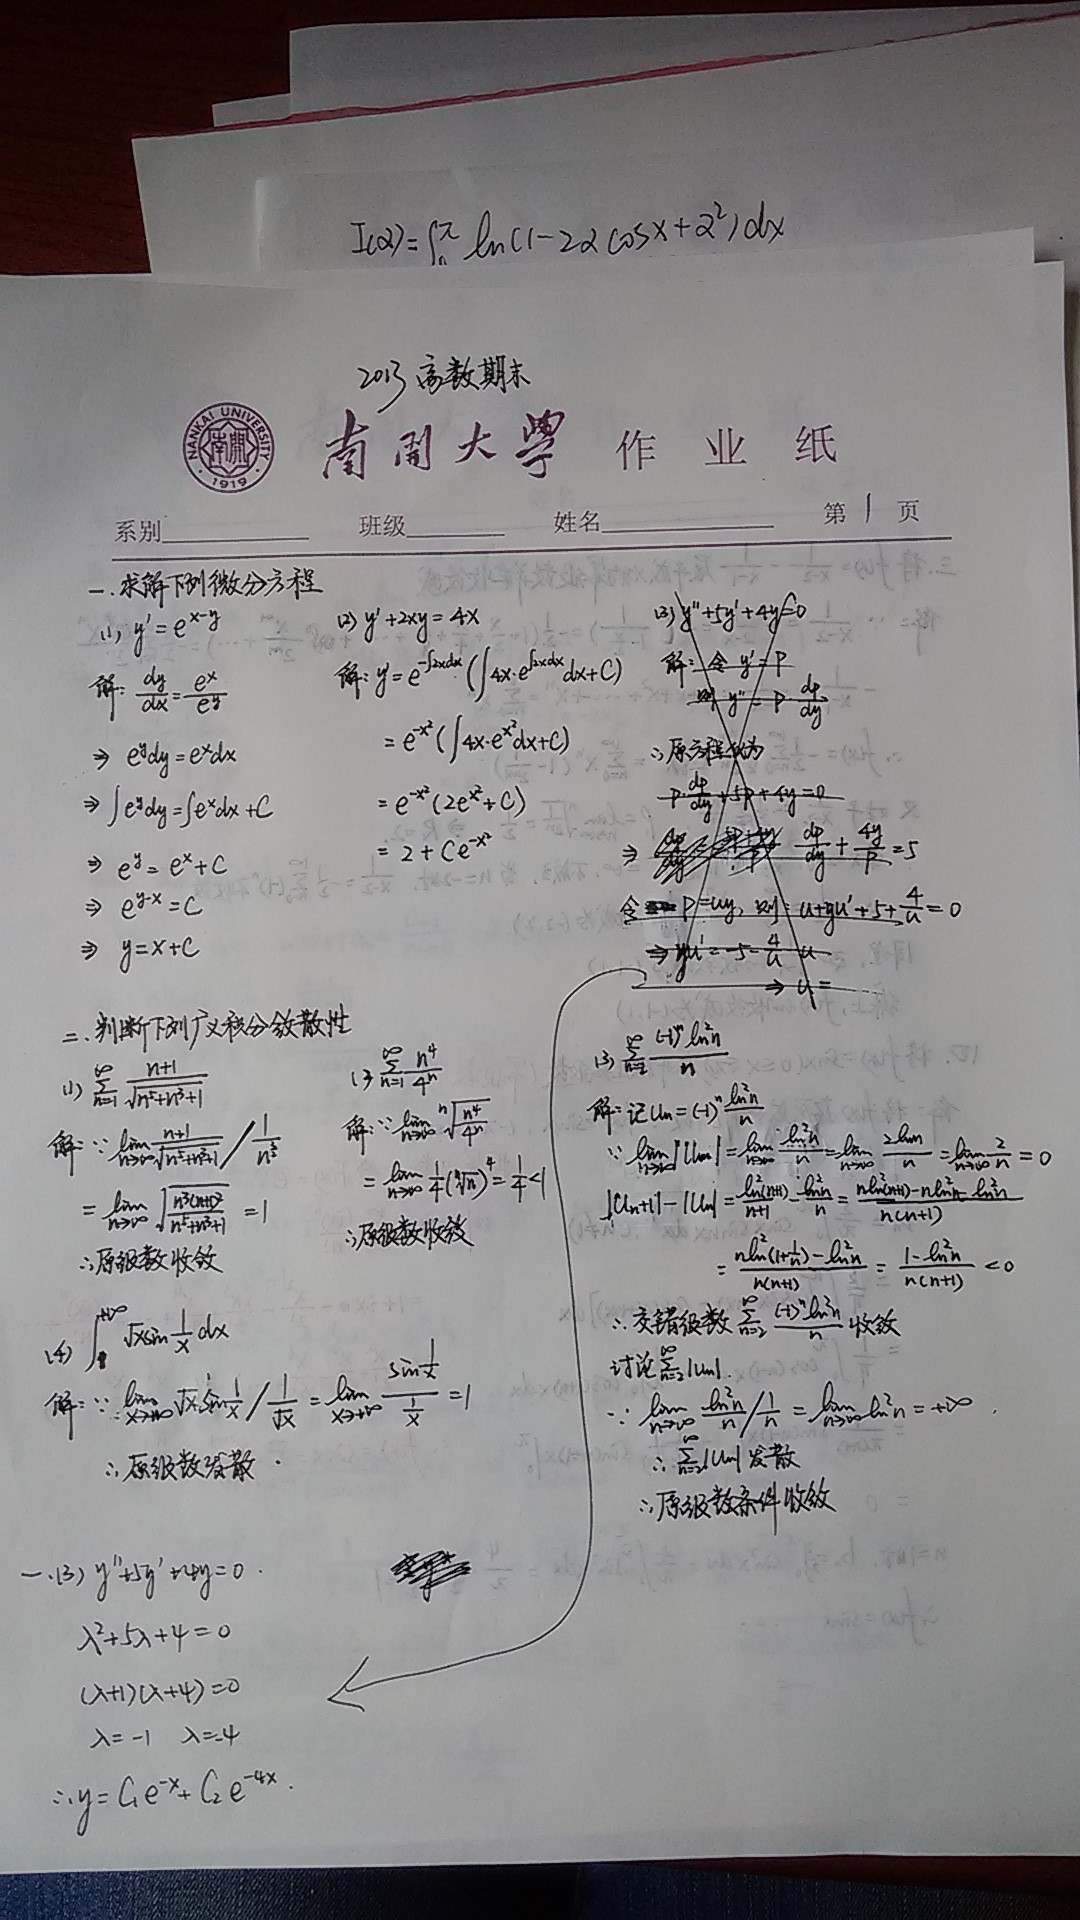 I(α)=∫₀^π ln(1-2αcosx+α²)dx
2013 高数期末
NANKAI UNIVERSITY
南開
·1919·
南開大學 作业纸
系别 班级 姓名 第1页
一.求解下列微分方程
(1) y'=e^{x-y}
解: dy/dx=e^x/e^y
⇒ e^y dy=e^x dx
⇒ ∫e^y dy=∫e^x dx+C
⇒ e^y=e^x+C
⇒ e^{y-x}=C
⇒ y=x+C
(2) y'+2xy=4x
解: y=e^{-∫2xdx}(∫4x·e^{∫2xdx}dx+C)
=e^{-x²}(∫4x·e^{x²}dx+C)
=e^{-x²}(2e^{x²}+C)
=2+Ce^{-x²}
(3) y''+5y'+4y=0
解: 令 y'=P
则 y''=P·dp/dy
∴原方程化为
P·dp/dy+5P+4y=0
⇒ dp/dy+4y/P=5
令 P=uy, 则: u+yu'+5+4/u=0
⇒ yu'=-5-4/u-u
⇒ u=
二.判断下列广义积分敛散性
(1) ∑_{n=1}^∞ (n+1)/√(n⁵+n³+1)
解: ∵ lim_{n→∞} (n+1)/√(n⁵+n³+1) / 1/n^{3/2}
=lim_{n→∞} √(n³(n+1)²/(n⁵+n³+1)) =1
∴原级数收敛
(2) ∑_{n=1}^∞ n⁴/4ⁿ
解: ∵ lim_{n→∞} ⁿ√(n⁴/4ⁿ)
=lim_{n→∞} 1/4(ⁿ√n)⁴=1/4<1
∴原级数收敛
(3) ∑_{n=2}^∞ (-1)ⁿln²n/n
解: 记Un=(-1)ⁿ ln²n/n
∵ lim_{n→∞}|Un|=lim_{n→∞} ln²n/n=lim_{n→∞} 2lnn/n=lim_{n→∞} 2/n=0
|Un+1|-|Un|=ln²(n+1)/(n+1)-ln²n/n=(nln²(n+1)-nln²n-ln²n)/(n(n+1))
=(nln²(1+1/n)-ln²n)/(n(n+1))=(1-ln²n)/(n(n+1))<0
∴交错级数∑_{n=2}^∞ (-1)ⁿln²n/n 收敛
讨论∑_{n=2}^∞|Un|.
∵ lim_{n→∞} ln²n/n / 1/n=lim_{n→∞}ln²n=+∞.
∴∑_{n=2}^∞|Un|发散
∴原级数条件收敛
(4) ∫^{+∞} √x sin1/x dx
解: ∵ lim_{x→+∞} √x sin1/x / 1/√x=lim_{x→+∞} sin(1/x)/(1/x)=1
∴原级数发散.
一.(3) y''+5y'+4y=0.
λ²+5λ+4=0
(λ+1)(λ+4)=0
λ=-1 λ=-4
∴y=C₁e^{-x}+C₂e^{-4x}.